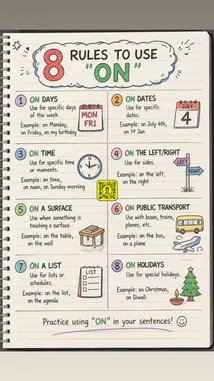 8 RULES TO USE
"ON"
1 ON DAYS
Use for specific days
of the week.
Example: on Monday,
on Friday, on my birthday
MON
FRI
2 ON DATES
Use for specific
dates.
Example: on July 4th,
on 1st Jan
JULY
4
3 ON TIME
Use for specific time
or moments.
Example: on time,
on noon, on Sunday morning
4 ON THE LEFT/RIGHT
Use for sides.
Example: on the left,
on the right
LEFT
RIGHT
5 ON A SURFACE
Use when something is
touching a surface.
Example: on the table,
on the wall
6 ON PUBLIC TRANSPORT
Use with buses, trains,
planes, etc.
Example: on the bus,
on a plane
7 ON A LIST
Use for lists or
schedules.
Example: on the list,
on the agenda
LIST
8 ON HOLIDAYS
Use for special holidays.
Example: on Christmas,
on Diwali
Practice using "ON" in your sentences!